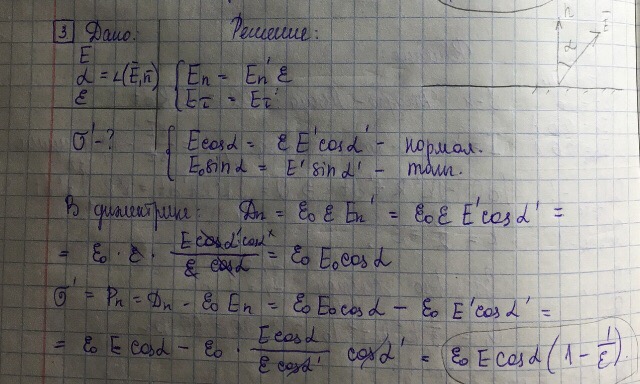 3. Дано: Решение:
E
α = ∠(E̅,n̅)
ε
σ' - ?
{ En = En' ε
Eτ = Eτ'
{ E cosα = ε E' cosα' - нормал.
E₀ sinα = E' sinα' - танг.
n̅ E̅
α
В диэлектрике: Dn = ε₀ ε En' = ε₀ ε E' cosα' =
= ε₀ · ε · E cosα' cosα / ε cosα = ε₀ E₀ cosα
σ' = Pn = Dn - ε₀ En = ε₀ E₀ cosα - ε₀ E' cosα' =
= ε₀ E cosα - ε₀ · E cosα / ε cosα' cosα' = ε₀ E cosα (1 - 1/ε).